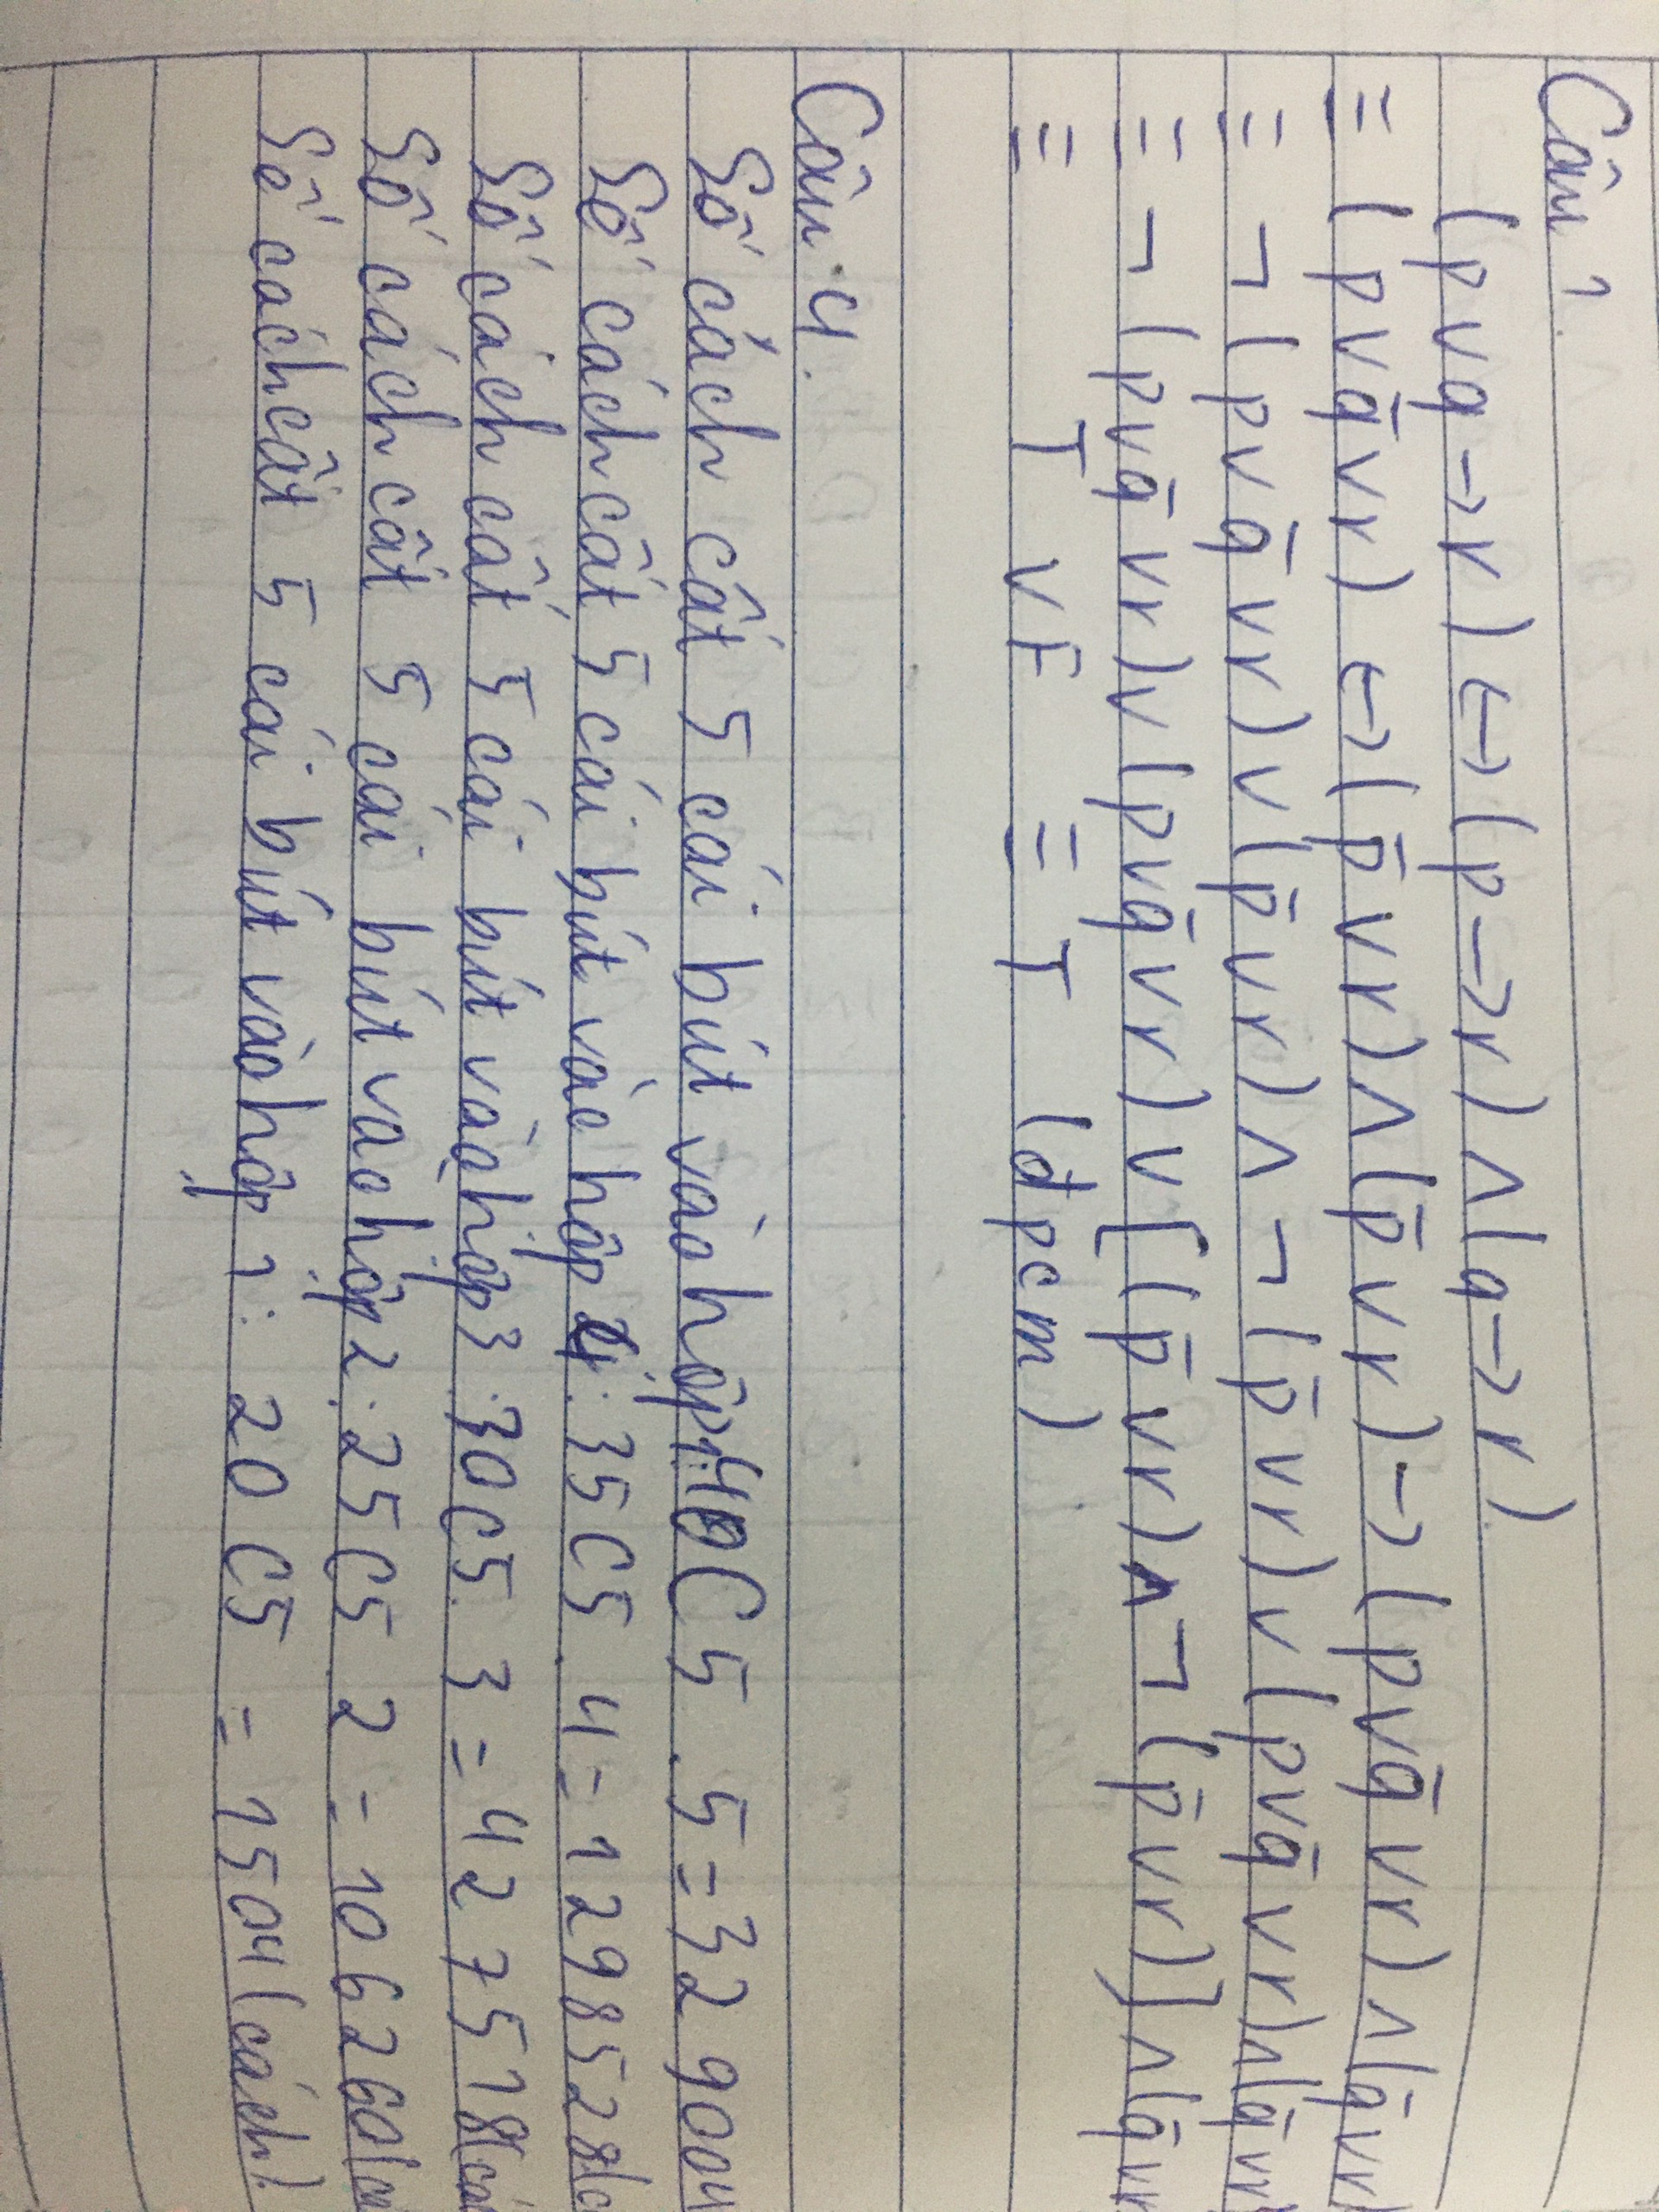 Câu 1.
(p∨q→r) ↔ (p→r) ∧ (q→r)
≡ (p∨q̄∨r) ↔ (p̄∨r) ∧ (p̄∨r) → (p∨q̄∨r) ∧ (q̄∨r)
≡ ¬(p∨q̄∨r) ∨ (p̄∨r) ∧ ¬(p̄∨r) ∨ (p∨q̄∨r) ∧ (q̄∨r
≡ ¬(p∨q̄∨r) ∨ (p∨q̄∨r) ∨ [(p̄∨r) ∧ ¬(p̄∨r)] ∧ (q̄∨r
≡ T ∨ F ≡ T (đpcm)
Câu 4.
Số cách cất 5 cái bút vào hộp 40C5 . 5 = 329004
Số cách cất 5 cái bút vào hộp 4: 35C5 . 4 = 1298528(c
Số cách cất 5 cái bút vào hộp 3: 30C5 . 3 = 427518(cá
Số cách cất 5 cái bút vào hộp 2: 25C5 . 2 = 106260(cá
Số cách cất 5 cái bút vào hộp 1: 20C5 = 1504(cách)